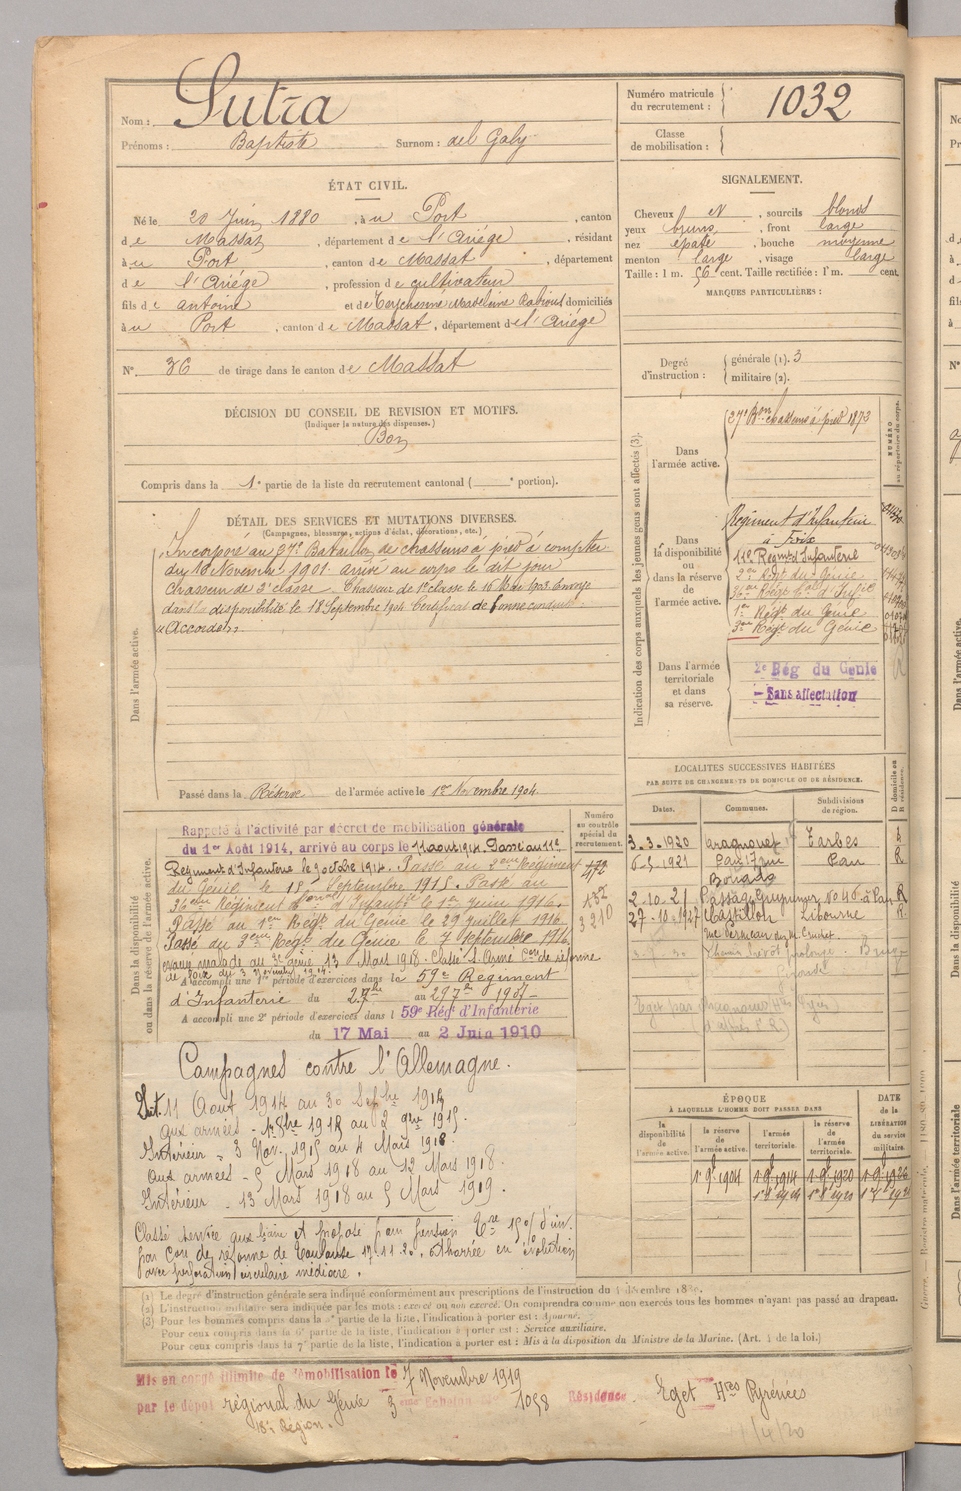 Nom : Sutra
Prénoms : Baptiste Surnom : del Galy
Numéro matricule du recrutement : 1032
Classe de mobilisation :
ÉTAT CIVIL.
Né le 20 Juin 1880, à u Port, canton
d e Massat, département d e l'Ariége, résidant
à u Port, canton d e Massat, département
d e l'Ariége, profession d e cultivateur
fils d e antoine et d e Madeleine domiciliés
à u Port, canton d e Massat, département d e l'Ariége
N° 36 de tirage dans le canton d e Massat
SIGNALEMENT.
Cheveux et, sourcils blonds
yeux bruns, front large
nez épaté, bouche moyenne
menton large, visage large
Taille : 1 m. 56 cent. Taille rectifiée : 1 m. cent.
MARQUES PARTICULIÈRES :
Degré d'instruction : générale (1). 3
militaire (2).
DÉCISION DU CONSEIL DE REVISION ET MOTIFS.
(Indiquer la nature des dispenses.)
Bon
Compris dans la 1e partie de la liste du recrutement cantonal ( e portion).
DÉTAIL DES SERVICES ET MUTATIONS DIVERSES.
(Campagnes, blessures, actions d'éclat, décorations, etc.)
Dans l'armée active.
Incorporé au 27e Bataillon de chasseurs à pied à compter
du Novembre 1901. arrivé au corps le dit jour
Chasseur de 2e classe. Chasseur de 1e classe le 16 Mai 1903. Envoyé
dans la disponibilité le 18 Septembre 1904. Certificat de bonne conduite
"Accordé".
Passé dans la Réserve de l'armée active le 1er Novembre 1904.
Indication des corps auxquels les jeunes gens sont affectés (3).
NUMÉRO au répertoire du corps.
Dans l'armée active.
27e Bon chasseurs à pied 1873
Dans la disponibilité ou dans la réserve de l'armée active.
Régiment d'Infanterie
à Foix
11e Régimt d'Infanterie
2me Régt du Génie
36me Régt d'Infie
1er Régt du Génie
3me Régt du Génie
Dans l'armée territoriale et dans sa réserve.
2e Rég du Génie
Sans affectation
Dans la disponibilité ou dans la réserve de l'armée active.
Numéro au contrôle spécial du recrutement.
472
132
3210
Rappelé à l'activité par décret de mobilisation générale
du 1er Août 1914, arrivé au corps le 11 août 1914. Passé au 11e
Régiment d'Infanterie le 9 octobre 1914. Passé au 2eme Régiment
du Génie le 15 Septembre 1915. Passé au
36eme Régiment d'Infanterie le 1er Juin 1916.
Passé au 1er Régt du Génie le 29 juillet 1916
Passé au 3eme Régt du Génie le 7 septembre 1916.
malade au 3e génie 13 Mars 1918. Classé S. Armé Con de réforme
de Foix du 3 Novembre
A accompli une 1re période d'exercices dans le 59e Régiment
d'Infanterie du au 1907
A accompli une 2e période d'exercices dans l 59e Rég d'Infanterie
du 17 Mai au 2 Juin 1910
Campagnes contre l'Allemagne.
Int. 11 Août 1914 au 30 Sepbre 1914
aux armées - 1914 au 2 1915.
Intérieur - 3 Nov. 1915 au 4 Mars 1918.
Aux armées - 5 Mars 1918 au 12 Mars 1918.
Intérieur - 13 Mars 1918 au 5 Mars 1919.
Classé service auxiliaire et proposé pour pension 15% d'inv.
par Con de réforme de Toulouse 17.11.20. otorrée en évolution
avec perforation circulaire médiocre.
LOCALITÉS SUCCESSIVES HABITÉES
PAR SUITE DE CHANGEMENTS DE DOMICILE OU DE RÉSIDENCE.
Dates. Communes. Subdivisions de région. D domicile ou R résidence.
3-3-1920 Aragnouet Tarbes
6-5-1921 Pau Pau R
2-10-21 Passage No 40 à Pau R
27-10-1927 Castillon Libourne R
ÉPOQUE
À LAQUELLE L'HOMME DOIT PASSER DANS
la disponibilité de l'armée active. la réserve de l'armée active. l'armée territoriale. la réserve de l'armée territoriale. DATE de la LIBÉRATION du service militaire.
1-9-1904 1-9-1914 1-9-1920 1-9-1926
(1) Le degré d'instruction générale sera indiqué conformément aux prescriptions de l'instruction du 4 décembre 1889.
(2) L'instruction militaire sera indiquée par les mots : exercé ou non exercé. On comprendra comme non exercés tous les hommes n'ayant pas passé au drapeau.
(3) Pour les hommes compris dans la 5e partie de la liste, l'indication à porter est : Ajourné.
Pour ceux compris dans la 6e partie de la liste, l'indication à porter est : Service auxiliaire.
Pour ceux compris dans la 7e partie de la liste, l'indication à porter est : Mis à la disposition du Ministre de la Marine. (Art. 4 de la loi.)
Mis en congé illimité de démobilisation le 7 Novembre 1919
par le dépôt régional du Génie 3eme Echelon 1058 Résidence Eget Htes Pyrénées
18e Région.
/4/20